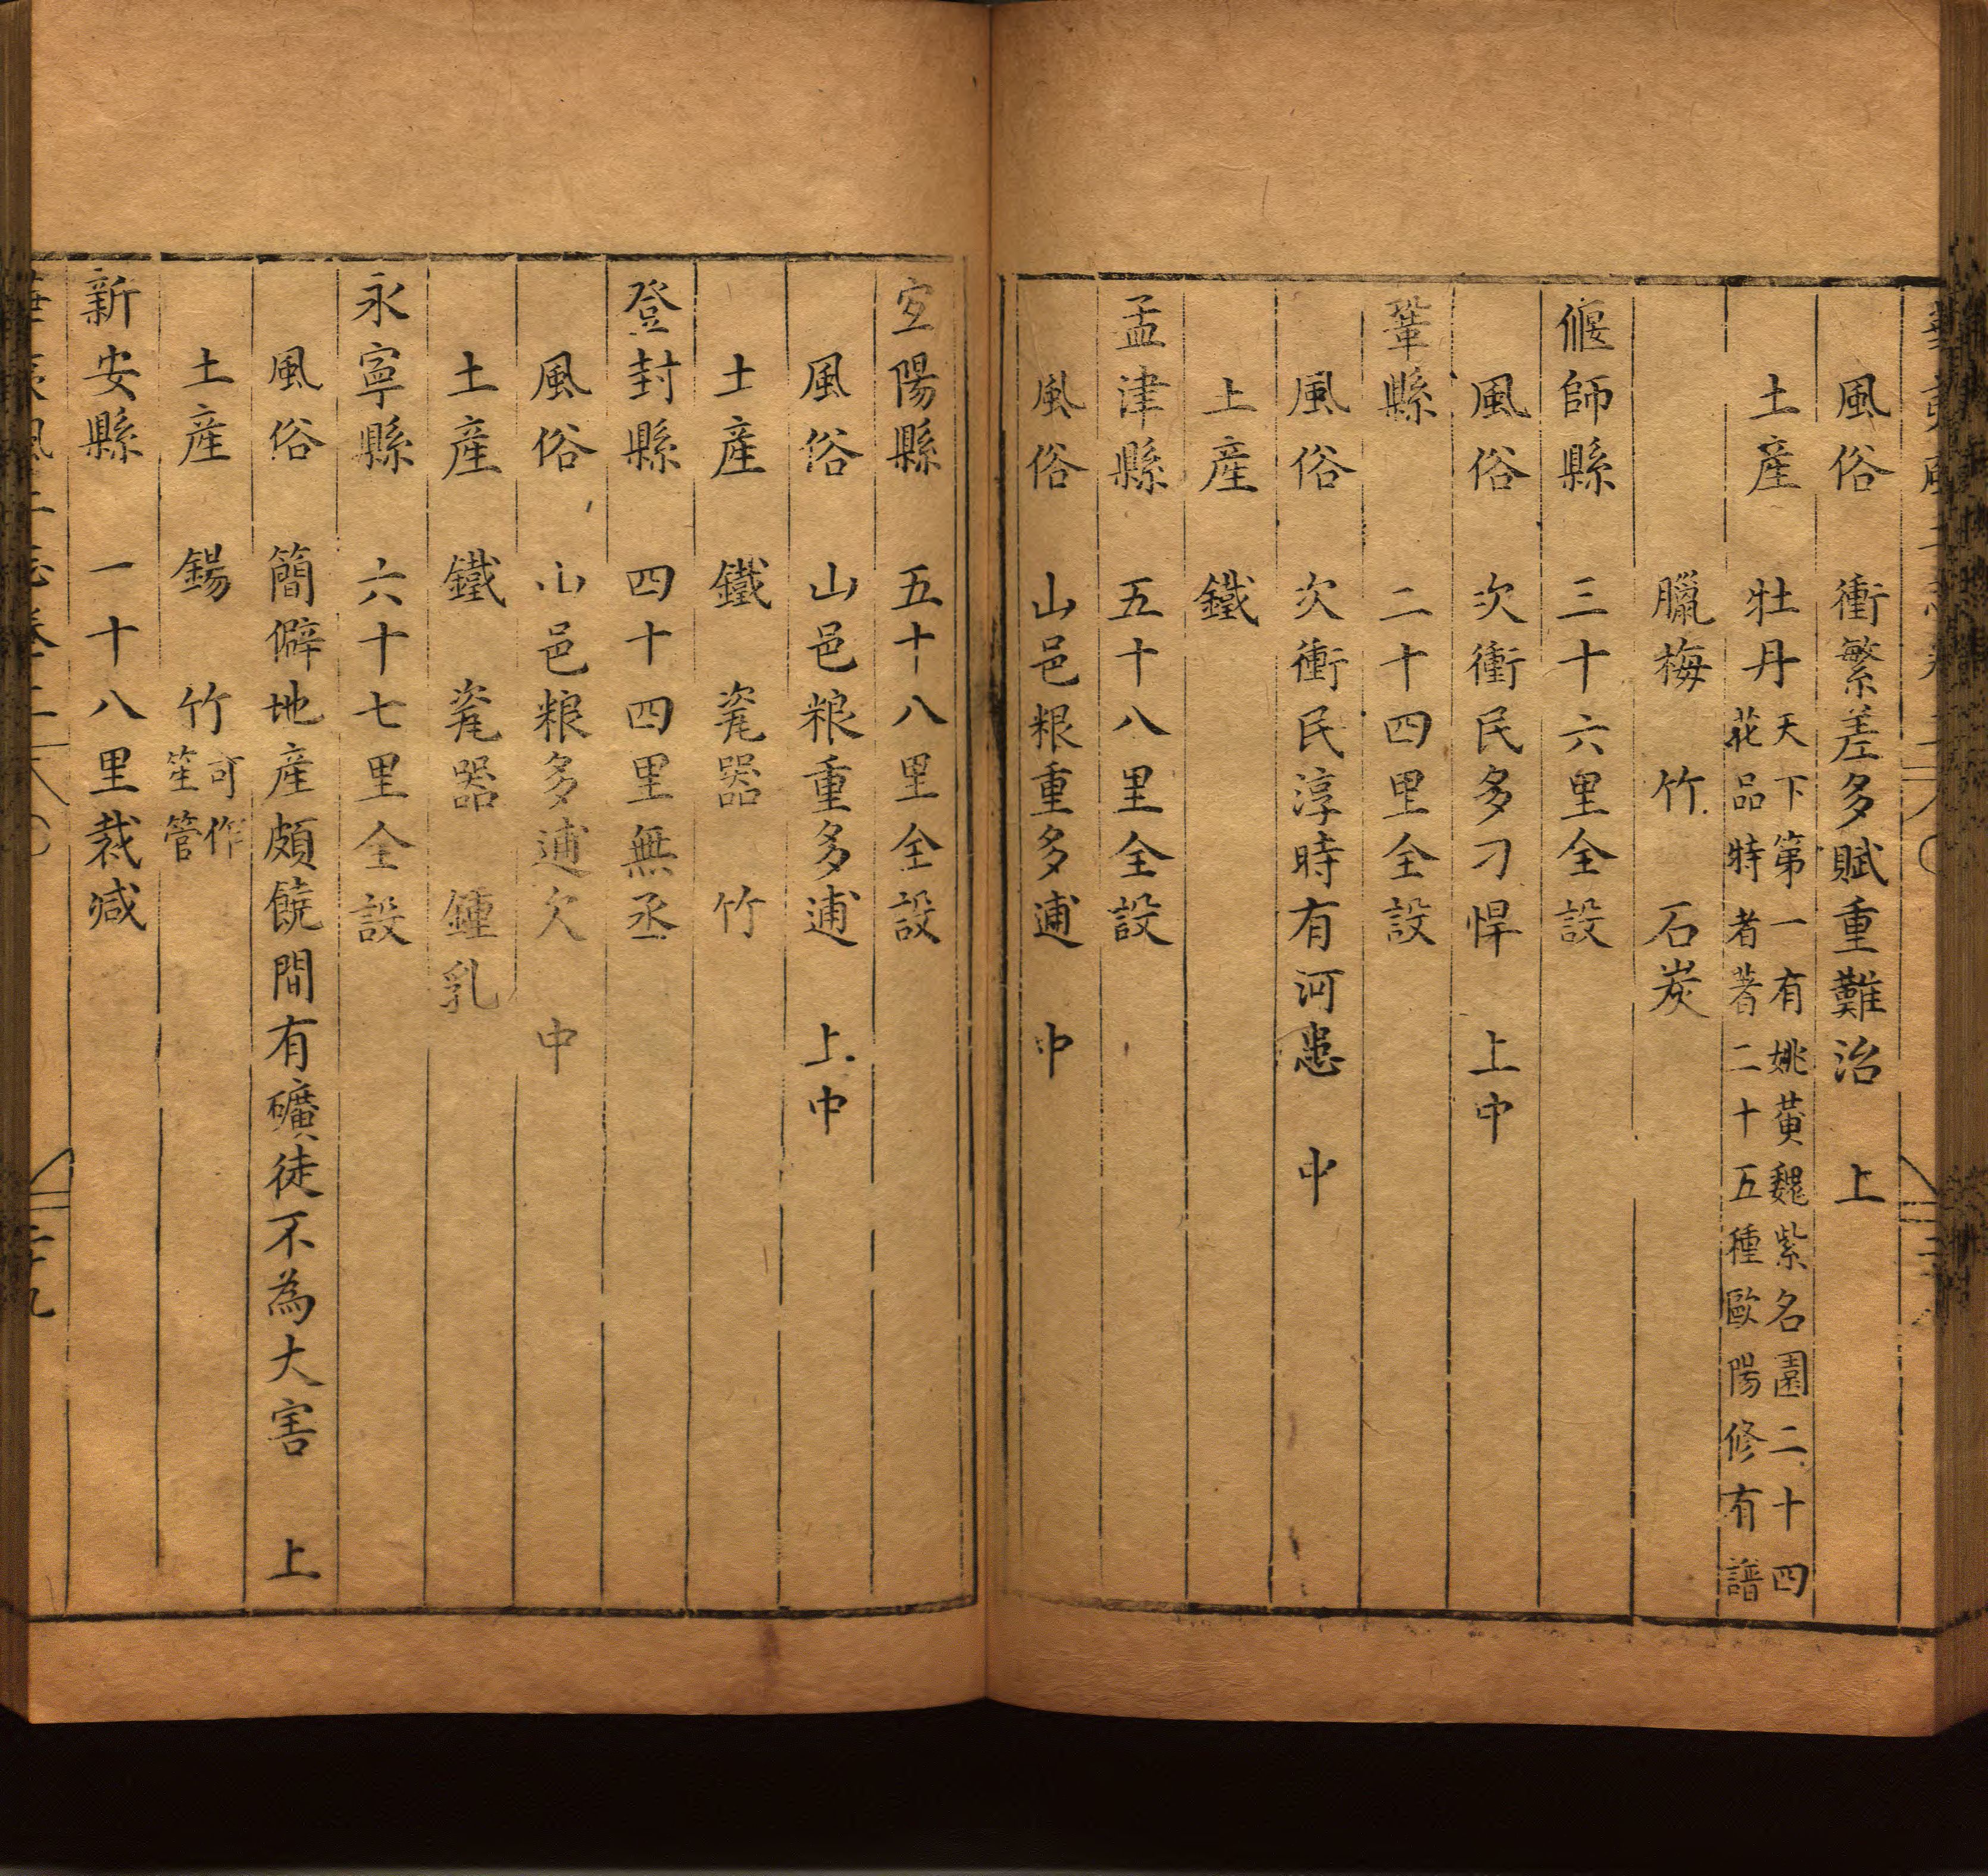 風俗　衝繁差多賦重難治　上
土產　牡丹天下第一有姚黃魏紫名園二十四
花品特者著二十五種歐陽修有譜
臘梅　竹　石炭
偃師縣　三十六里全設
風俗　次衝民多刁悍　上中
鞏縣　二十四里全設
風俗　次衝民淳時有河患　中
土產　鐵
孟津縣　五十八里全設
風俗　山邑粮重多逋　中
宜陽縣　五十八里全設
風俗　山邑粮重多逋　上中
土產　鐵　瓷器　竹
登封縣　四十四里無丞
風俗　山邑粮多逋欠　中
土產　鐵　瓷器　鍾乳
永寧縣　六十七里全設
風俗　簡僻地產頗饒間有礦徒不為大害　上
土產　錫　竹可作
笙管
新安縣　一十八里裁減